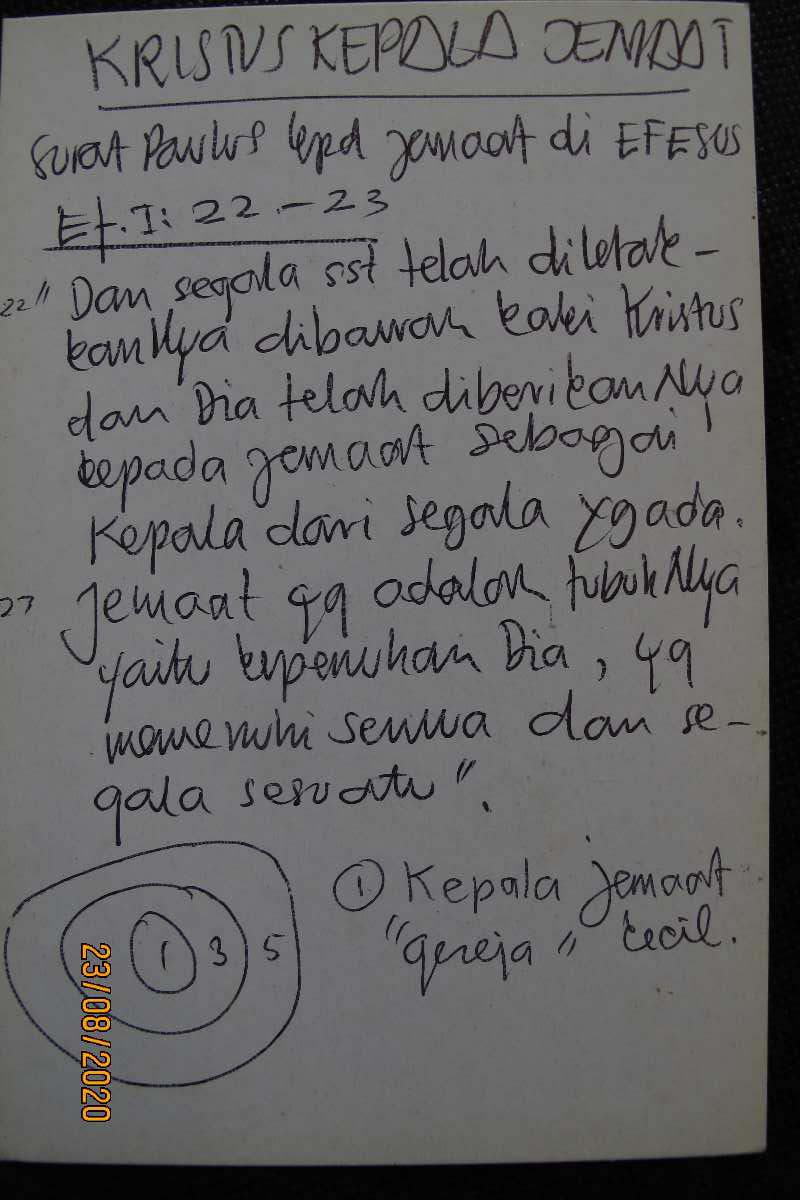 KRISTUS KEPALA JEMAAT
Surat Paulus kpd jemaat di EFESUS
Ef. I: 22 - 23
22 " Dan segala sst telah diletak-
kanNya dibawah kaki Kristus
dan Dia telah diberikanNya
kepada jemaat sebagai
Kepala dari segala yg ada.
23 Jemaat yg adalah tubuhNya
yaitu kepenuhan Dia, yg
memenuhi semua dan se-
gala sesuatu".
1 3 5
① Kepala jemaat
"gereja" kecil.
23/08/2020